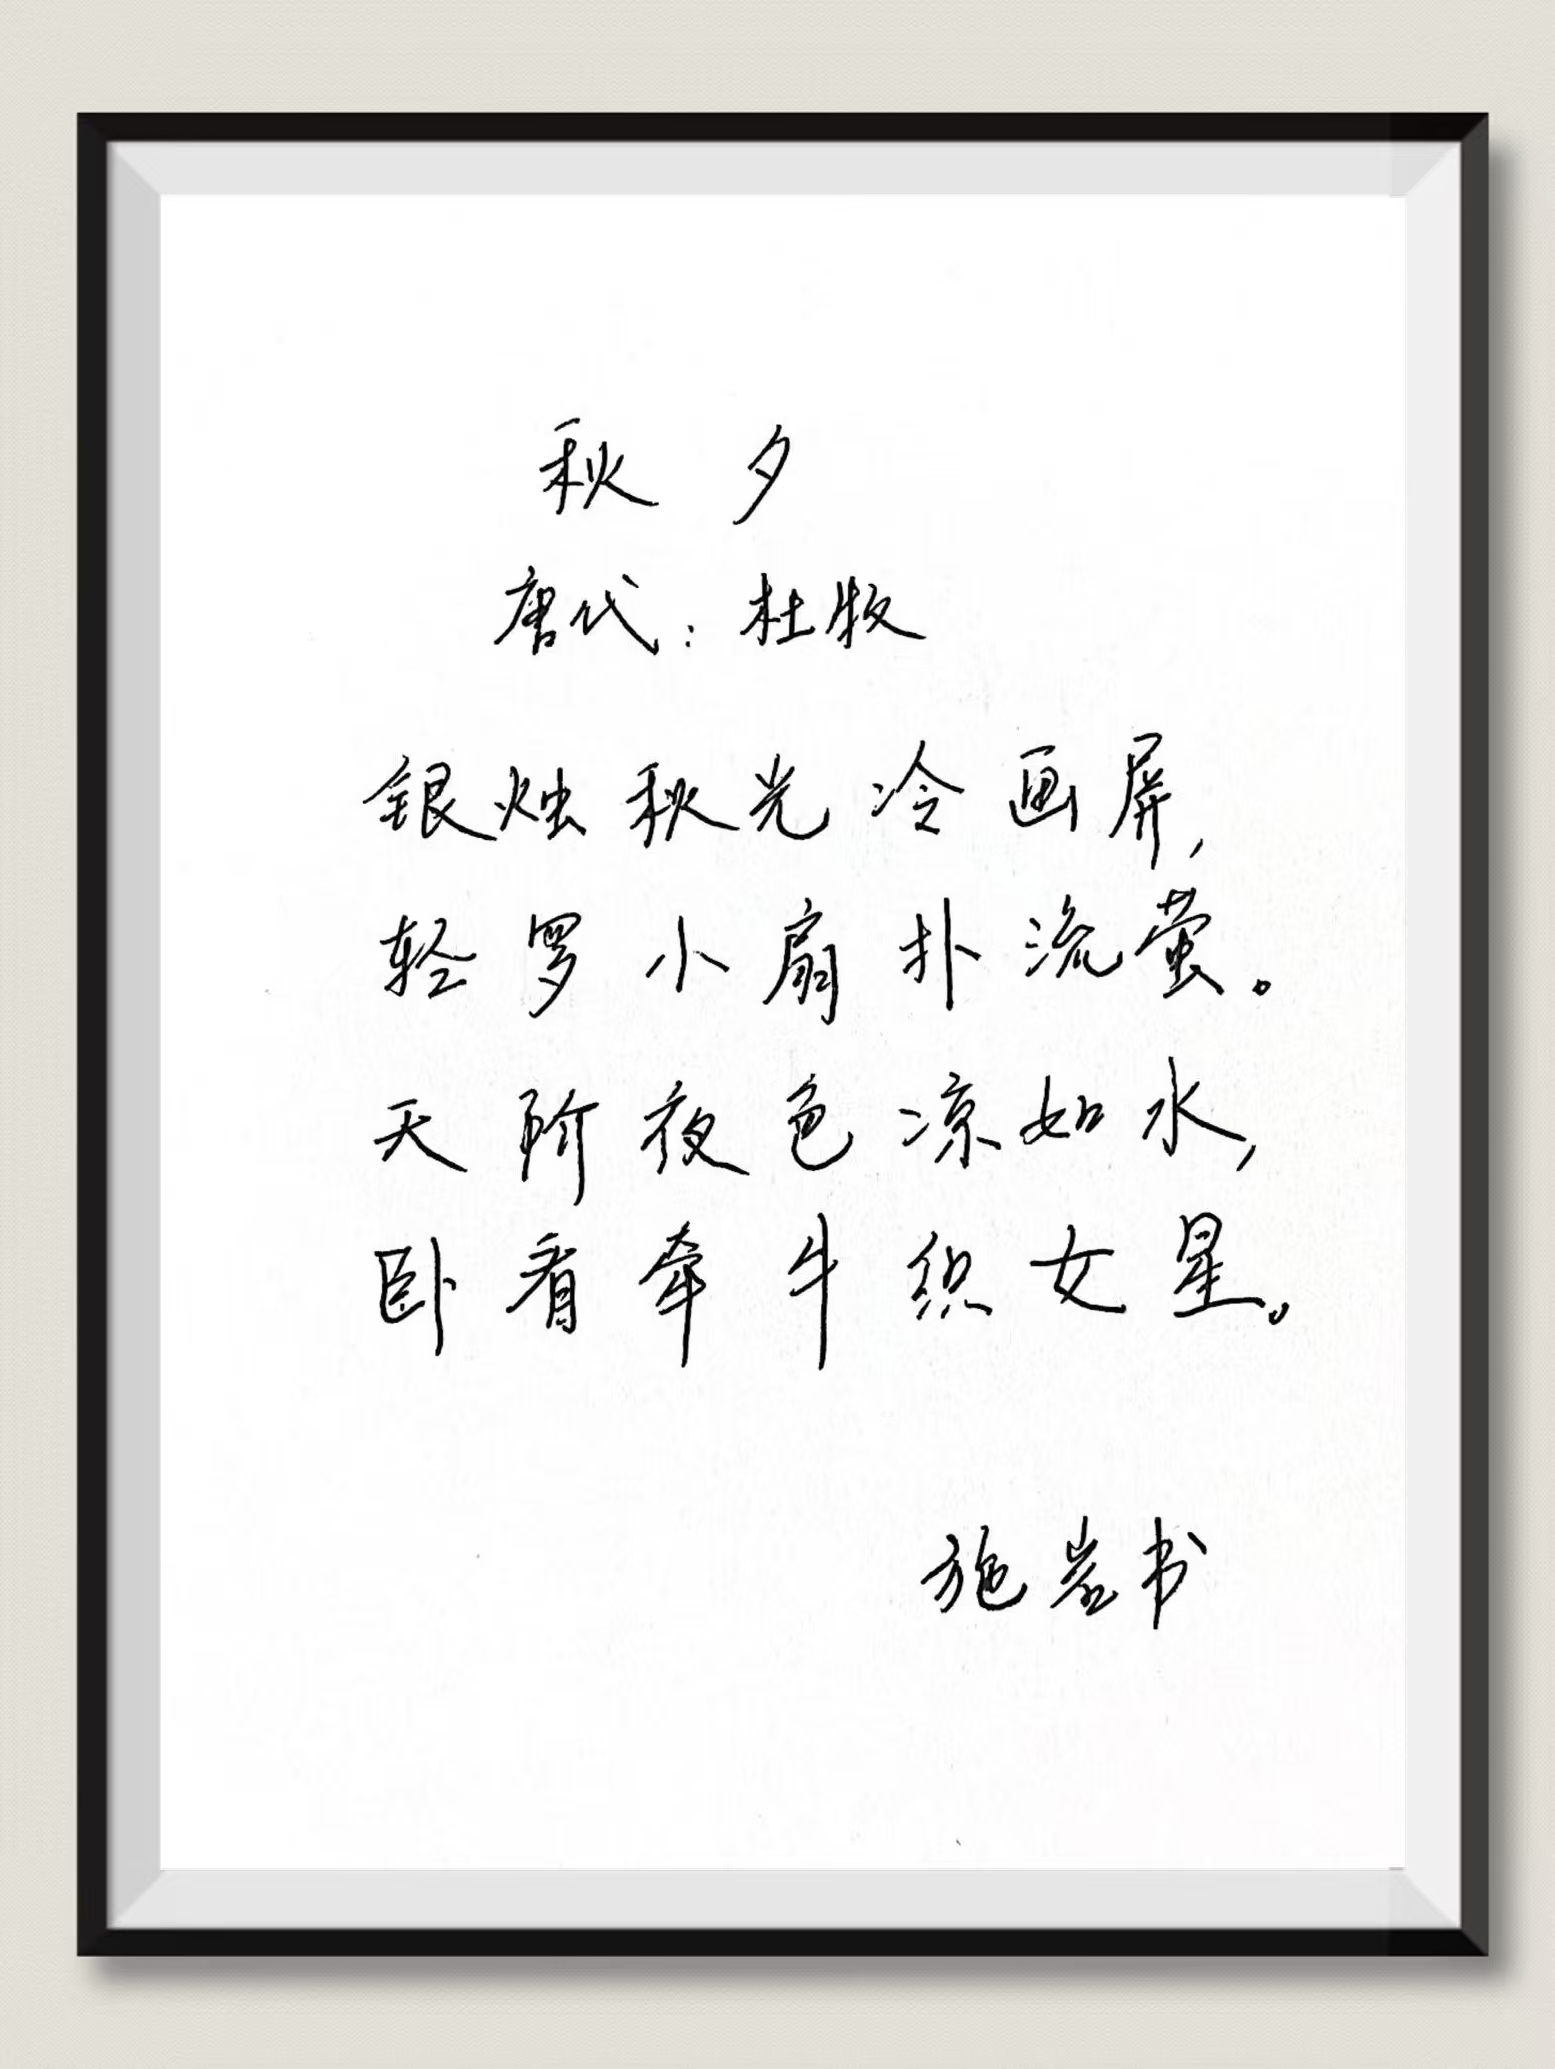 秋夕
唐代：杜牧
银烛秋光冷画屏，
轻罗小扇扑流萤。
天阶夜色凉如水，
卧看牵牛织女星。
施岩书